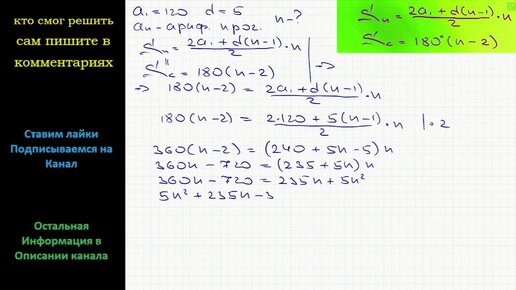 кто смог решить
сам пишите в
комментариях
Ставим лайки
Подписываемся на
Канал
Остальная
Информация в
Описании канала
a₁=120 d=5 n-?
aₙ-ариф. прог.
Sₙ = (2a₁+d(n-1))/2 · n
S = 180(n-2)
=> 180(n-2) = (2a₁+d(n-1))/2 · n
180(n-2) = (2·120+5(n-1))/2 · n |·2
360(n-2) = (240+5n-5)n
360n-720 = (235+5n)n
360n-720 = 235n+5n²
5n²+235n-3
Sₙ = (2a₁+d(n-1))/2 · n
S = 180°(n-2)